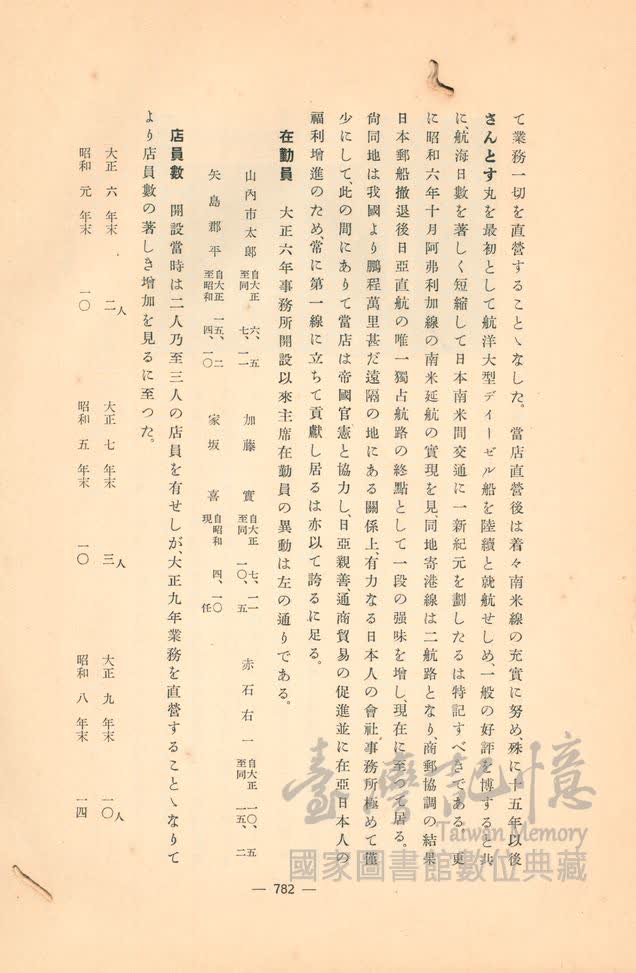 て業務一切を直營することゝなした。　當店直營後は着々南米線の充實に努め、殊に十五年以後
さんとす丸を最初として航洋大型ディーゼル船を陸續と就航せしめ、一般の好評を博すると共
に、航海日數を著しく短縮して日本南米間交通に一新紀元を劃したるは特記すべきである　更
に昭和六年十月阿弗利加線の南米延航の實現を見、同地寄港線は二航路となり、商郵協調の結果
日本郵船撤退後日亞直航の唯一獨占航路の終點として一段の强味を增し、現在に至つて居る。
尙同地は我國より鵬程萬里甚だ遠隔の地にある關係上、有力なる日本人の會社事務所極めて僅
少にして、此の間にありて當店は帝國官憲と協力し、日亞親善、通商貿易の促進並に在亞日本人の
福利增進のため、常に第一線に立ちて貢獻し居るは亦以て誇るに足る。
在勤員　大正六年事務所開設以來主席在勤員の異動は左の通りである。
山內市太郞　自大正　六、五　至同　七、一一　加藤實　自大正　七、一一　至同　一〇、五　赤石右一　自大正　一〇、五　至同　一五、二
矢島郡平　自大正　一五、二　至昭和　四、一〇　家坂喜　自昭和　四、一〇　現任
店員數　開設當時は二人乃至三人の店員を有せしが、大正九年業務を直營することゝなりて
より店員數の著しき增加を見るに至つた。
大正六年末　二人　大正七年末　三人　大正九年末　一〇人
昭和元年末　一〇　昭和五年末　一〇　昭和八年末　一四
— 782 —
臺灣記憶
Taiwan Memory
國家圖書館數位典藏